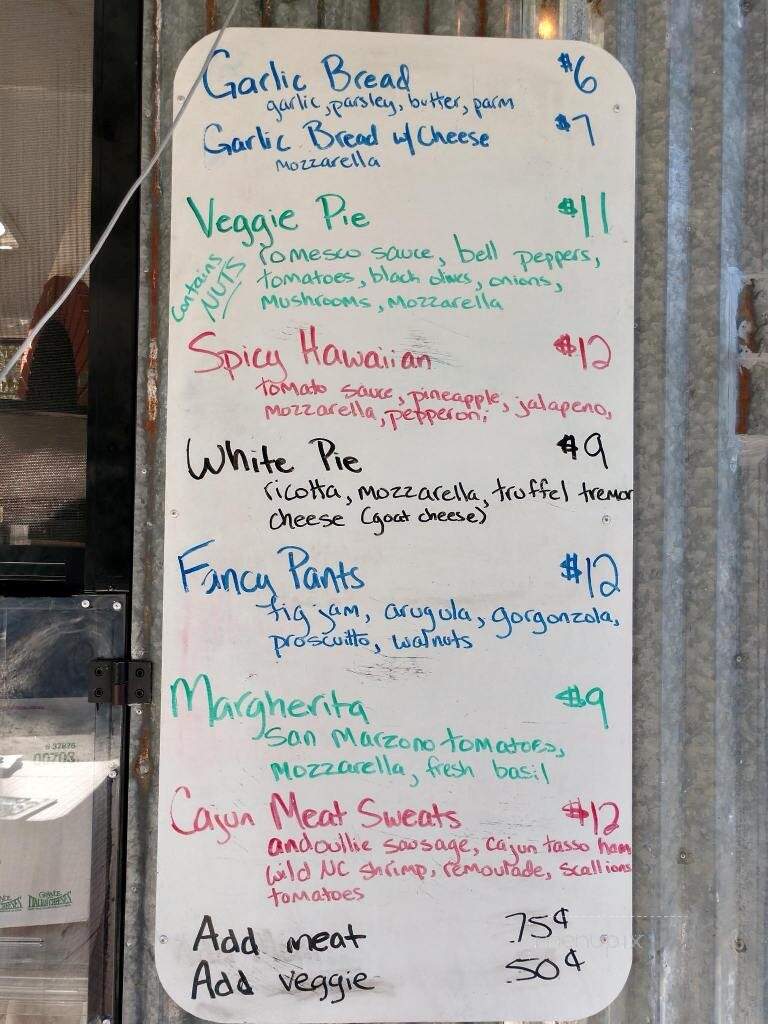 Garlic Bread $6
garlic, parsley, butter, parm
Garlic Bread w/ Cheese $7
mozzarella
Veggie Pie $11
Contains NUTS
romesco sauce, bell peppers,
tomatoes, black olives, onions,
mushrooms, mozzarella
Spicy Hawaiian $12
tomato sauce, pineapple, jalapeno,
mozzarella, pepperoni
White Pie $9
ricotta, mozzarella, truffel tremor
cheese (goat cheese)
Fancy Pants $12
fig jam, arugula, gorgonzola,
proscuitto, walnuts
Margherita $9
San Marzono tomatoes,
mozzarella, fresh basil
Cajun Meat Sweats $12
andoullie sausage, cajun tasso ham
wild NC shrimp, remoulade, scallions
tomatoes
Add meat .75¢
Add veggie .50¢